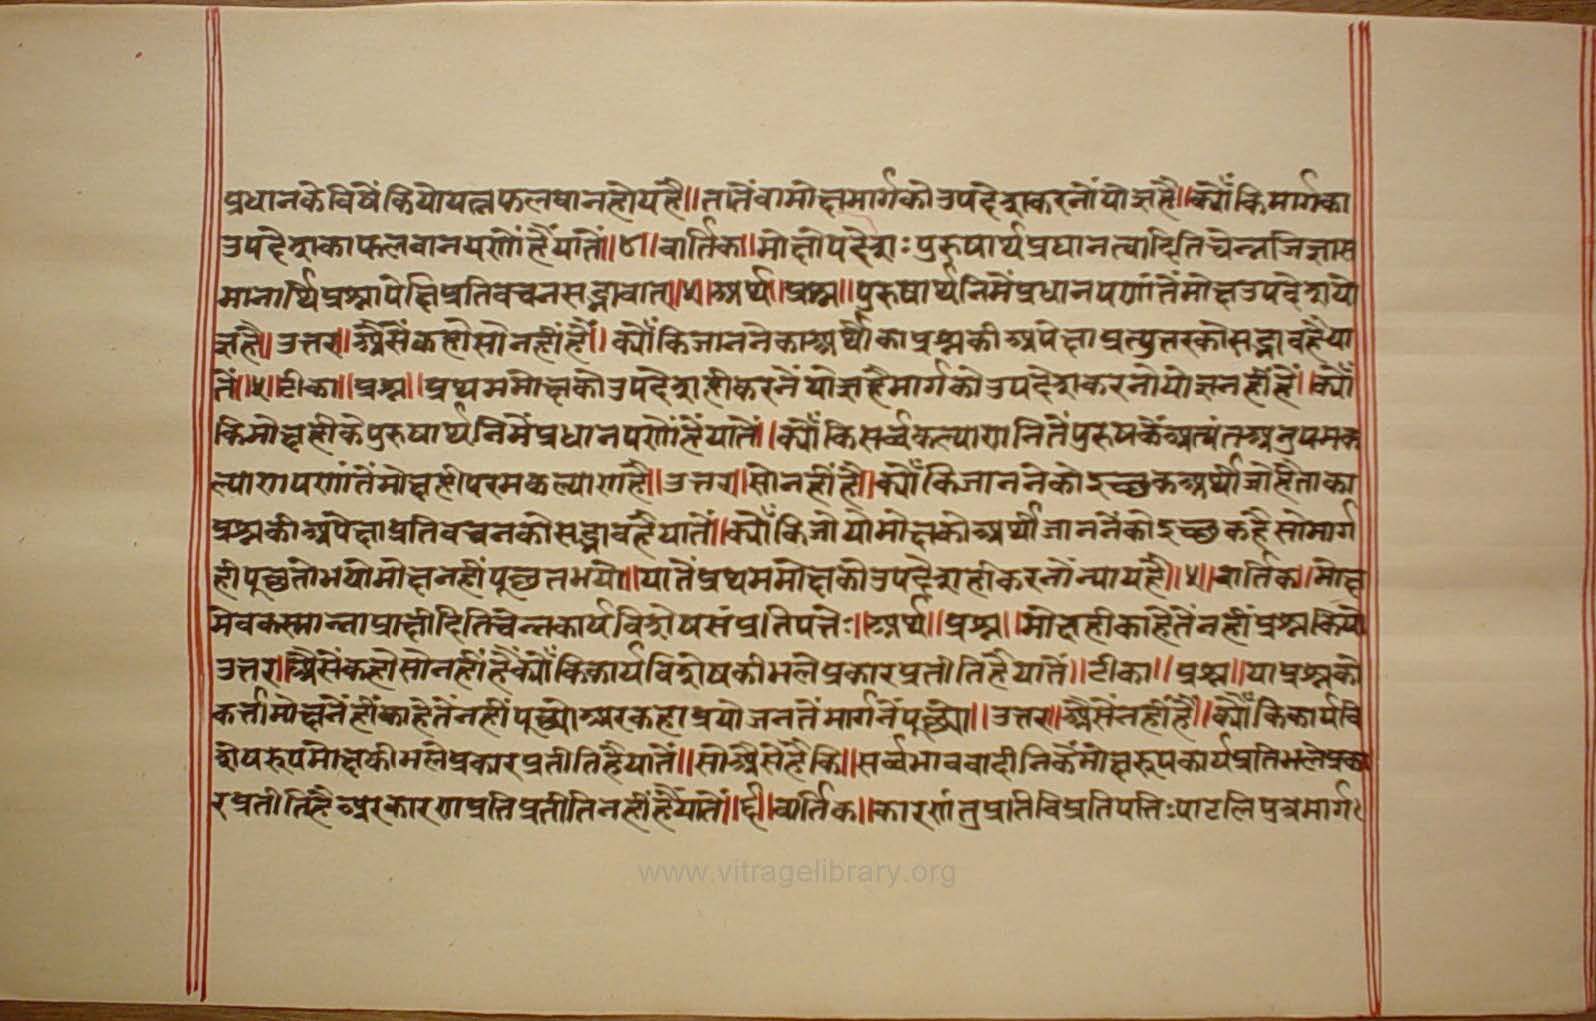 प्रधानके विषें कियो यत्न फलवान होय है॥ तातें वा मोक्षमार्गको उपदेश करनों योग्य है॥ क्योंकि मार्गका
उपदेशका फलवानपणों है यातें॥४॥ वार्तिक॥ मोक्षोपदेशः पुरुषार्थप्रधानत्वादिति चेन्न जिज्ञास
मानार्थिप्रश्नापेक्षिप्रतिवचनसद्भावात्॥५॥ अर्थ॥ प्रश्न॥ पुरुषार्थनिमें प्रधानपणांतें मोक्ष उपदेश यो
ग्य है॥ उत्तर॥ अैसें कहो सो नहीं है॥ क्योंकि जाननेका अर्थीका प्रश्नकी अपेक्षा प्रत्युत्तरको सद्भाव है या
तें॥५॥ टीका॥ प्रश्न॥ प्रथम मोक्षको उपदेश ही करनें योग्य है मार्गको उपदेश करनो योग्य नहीं है॥ क्यों
कि मोक्ष हीके पुरुषार्थनिमें प्रधानपणों है यातें॥ क्योंकि सर्व्व कल्याणनितें पुरुषकें अत्यंत अनुपम क
ल्याणपणांतें मोक्ष ही परम कल्याण है॥ उत्तर॥ सो नहीं है॥ क्योंकि जाननेको इच्छक अर्थी जो है ताका
प्रश्नकी अपेक्षा प्रतिवचनको सद्भाव है यातें॥ क्योंकि जो यो मोक्षको अर्थी जाननेंको इच्छक है सो मार्ग
ही पूछतो भयो मोक्ष नहीं पूछत भयो॥ यातें प्रथम मोक्षको उपदेश ही करनों न्याय है॥५॥ वार्तिक॥ मोक्ष
मेव कस्मान्नाप्राक्षीदिति चेन्न कार्यविशेषसंप्रतिपत्तेः॥ अर्थ॥ प्रश्न॥ मोक्ष ही काहेतें नहीं प्रश्न कियो
उत्तर॥ अैसें कहो सो नहीं है क्योंकि कार्यविशेषकी भले प्रकार प्रतीति है यातें॥ टीका॥ प्रश्न॥ या प्रश्नको
कर्त्ता मोक्षनें हीं काहेतें नहीं पूछ्यो अर कहा प्रयोजनतें मार्गनें पूछ्यो॥ उत्तर॥ अैसें नहीं है॥ क्योंकि कार्यवि
शेषरूप मोक्षकी भले प्रकार प्रतीति है यातें॥ सो अैसें है कि॥ सर्व्वभाववादीनिकें मोक्षरूप कार्य प्रति भले प्रका
र प्रतीति है अर कारण प्रति प्रतीति नहीं है यातें॥६॥ वार्तिक॥ कारणं तु प्रति विप्रतिपत्तिः पाटलिपुत्रमार्ग॰